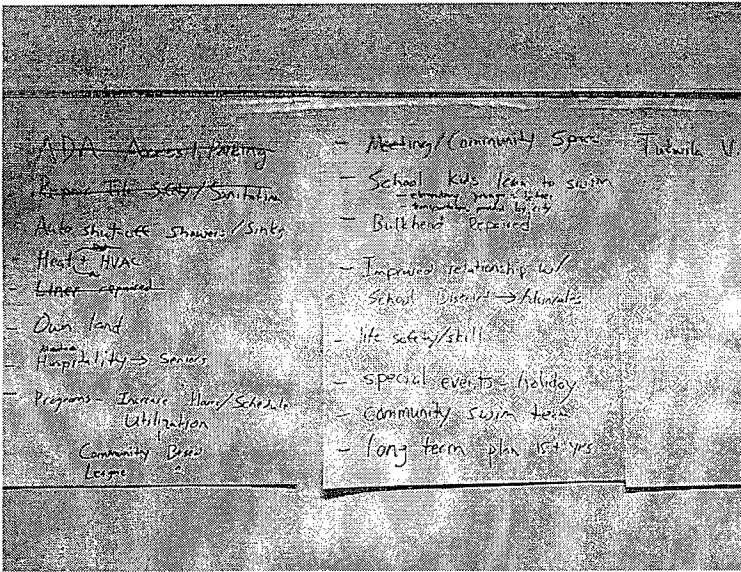 ADA Access / Parking
Repair Tile Safety/Sanitation
- Auto shut off Showers/Sinks
- Heat + HVAC
- Liner repaired
- Own land
- Hospitality → Seniors
- Programs - Increase Hours/Schedule
Utilization
Community Based
League
- Meeting/Community Space
- School kids learn to swim
- elementary, junior,
- transportation, by city
- Bulkhead Repaired
- Improved relationship w/
School District →
- life safety/skill
- special events - holiday
- community swim team
- long term plan 15+ yrs
Tukwila V.